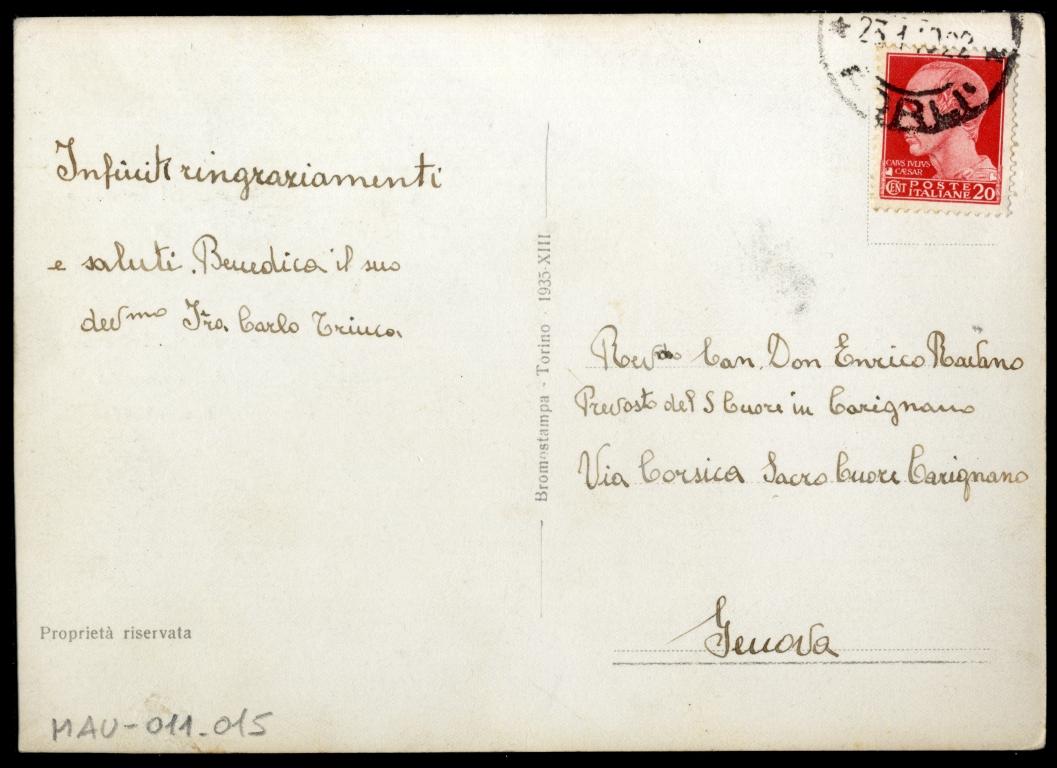 Infiniti ringraziamenti
e saluti. Benedica il suo
dev mo Fra Carlo Trinca
Proprietà riservata
MAU-011-015
Bromostampa - Torino - 1935-XIII
CAIVS IVLIVS
CÆSAR
CENT POSTE ITALIANE 20
Rev do Can. Don Enrico
Prevosto del S Cuore in Carignano
Via Corsica Sacro Cuore Carignano
Genova